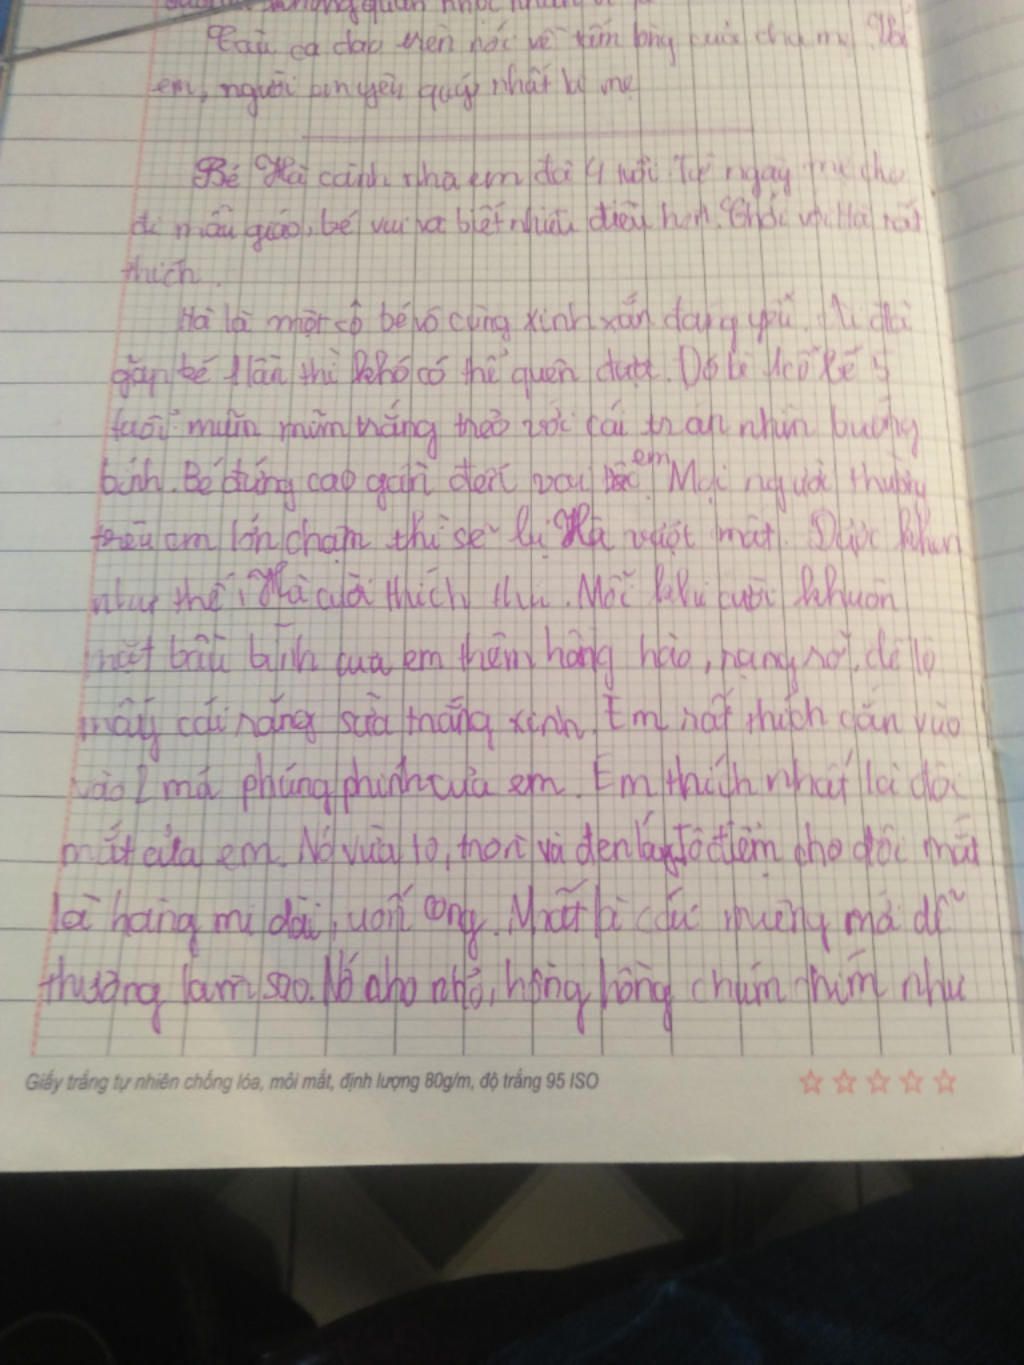 Câu ca dao trên nói về tấm lòng của cha mẹ. Với
em, người em yêu quý nhất là mẹ
Bé Hà cạnh nhà em đã 4 tuổi. Từ ngày mẹ cho
đi mẫu giáo, bé vui và biết nhiều điều hơn. Chơi với Hà rất
thích.
Hà là một cô bé vô cùng xinh xắn đáng yêu. Ai đã
gặp bé 1 lần thì khó có thể quên được. Đó là 1 cô bé 5
tuổi mũm mĩm trắng trẻo với cái trán nhìn bướng
bỉnh. Bé đứng cao gần đến vai em. Mọi người thường
trêu em lớn chậm thì sẽ bị Hà vượt mất. Được khen
như thế, Hà cười thích thú. Mỗi khi cười khuôn
mặt bầu bĩnh của em thêm hồng hào, rạng rỡ, để lộ
mấy cái răng sữa trắng xinh. Em rất thích cắn vào
vào 2 má phúng phính của em. Em thích nhất là đôi
mắt của em. Nó vừa to, tròn và đen láy. Tô điểm cho đôi mắt
là hàng mi dài, uốn cong. Nhất là cái miệng mới dễ
thương làm sao. Nó nho nhỏ, hồng hồng chúm chím như
Giấy trắng tự nhiên chống lóa, mỏi mắt, định lượng 80g/m, độ trắng 95 ISO